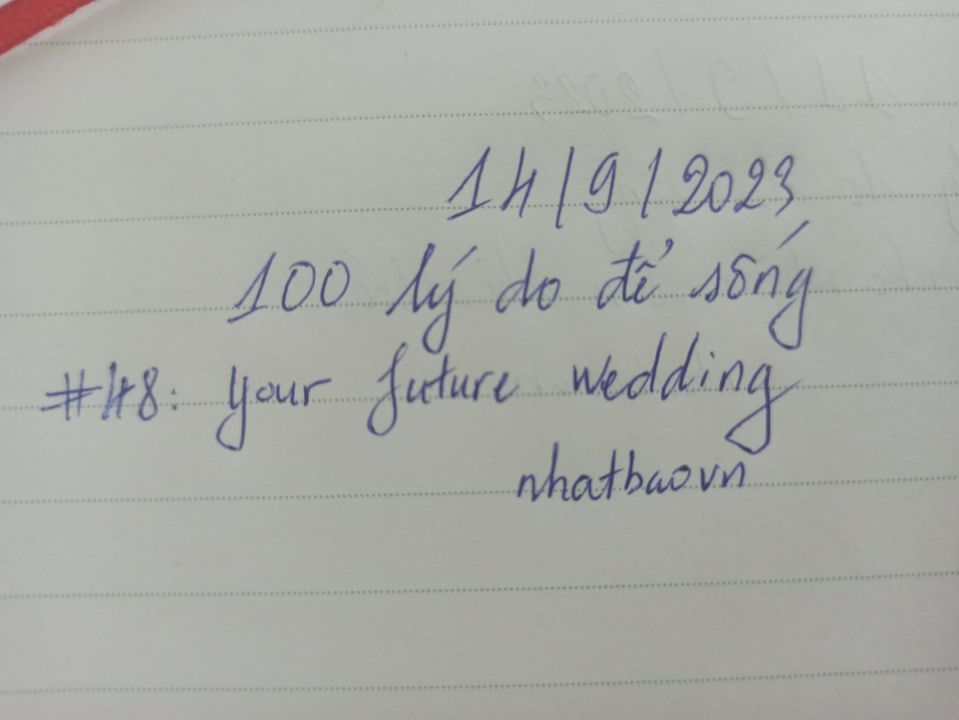 14/9/2023
100 lý do để sống
#48: your future wedding
nhatbaovn